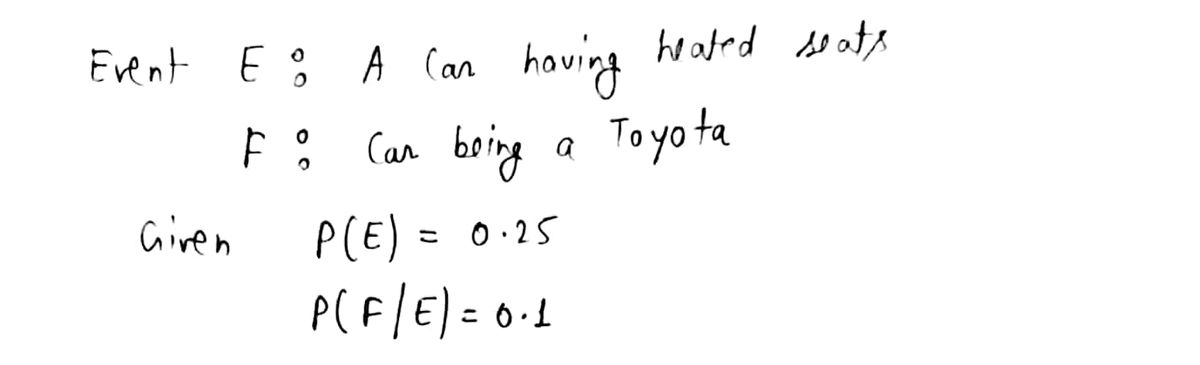 Event E : A Car having heated seats
F : Car being a Toyota
Given P(E) = 0.25
P(F/E) = 0.1